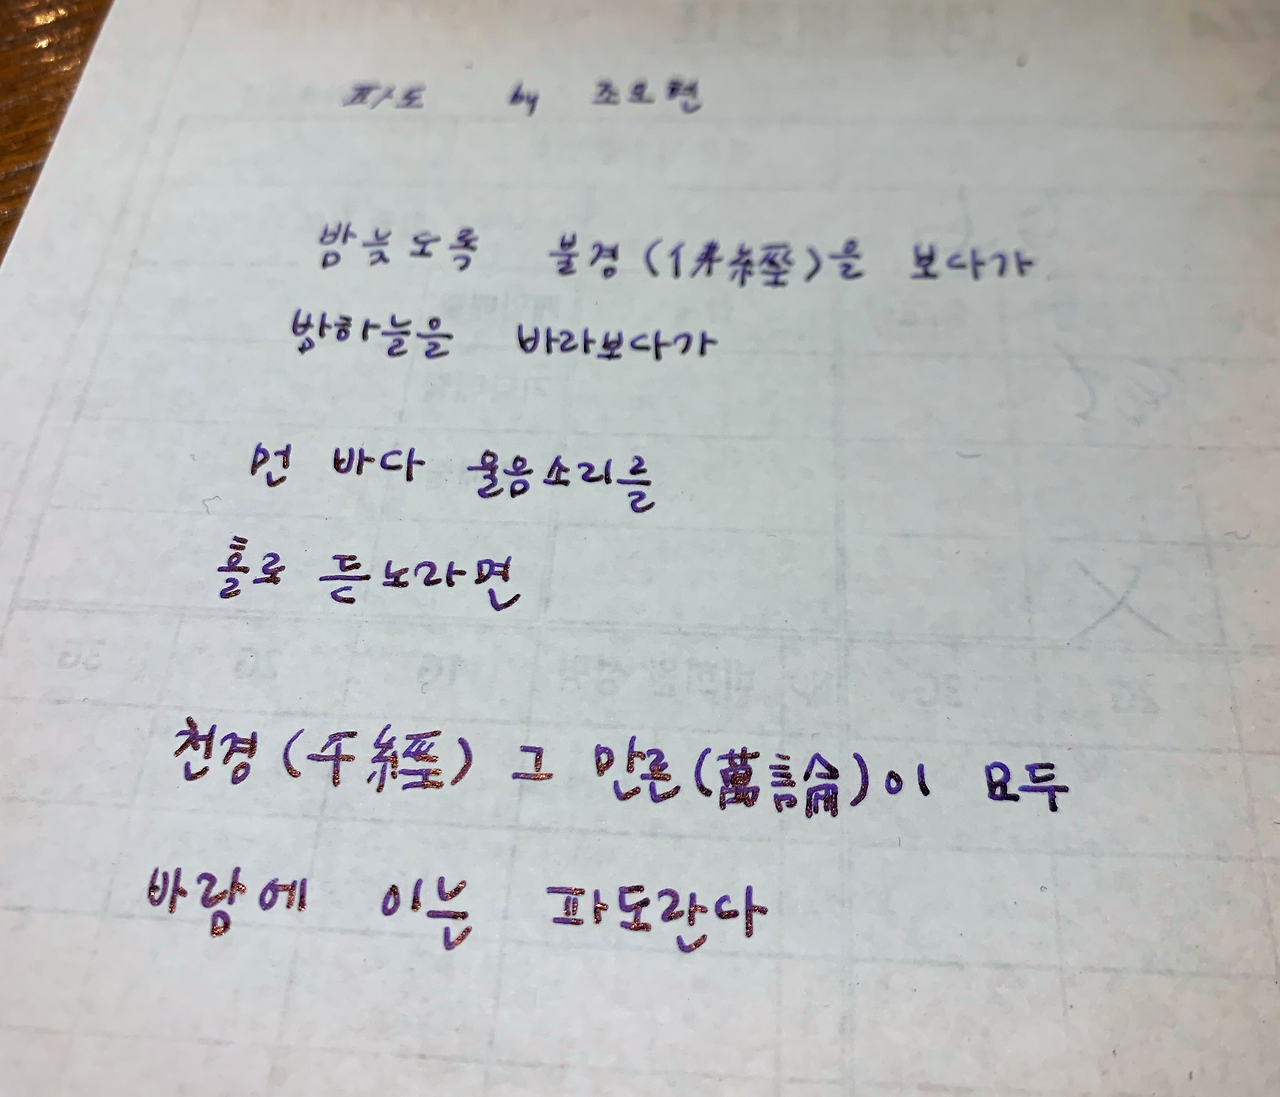 파도 by 조오현
밤늦도록 불경(佛經)을 보다가
밤하늘을 바라보다가
먼 바다 울음소리를
홀로 듣노라면
천경(千經) 그 만론(萬論)이 모두
바람에 이는 파도란다